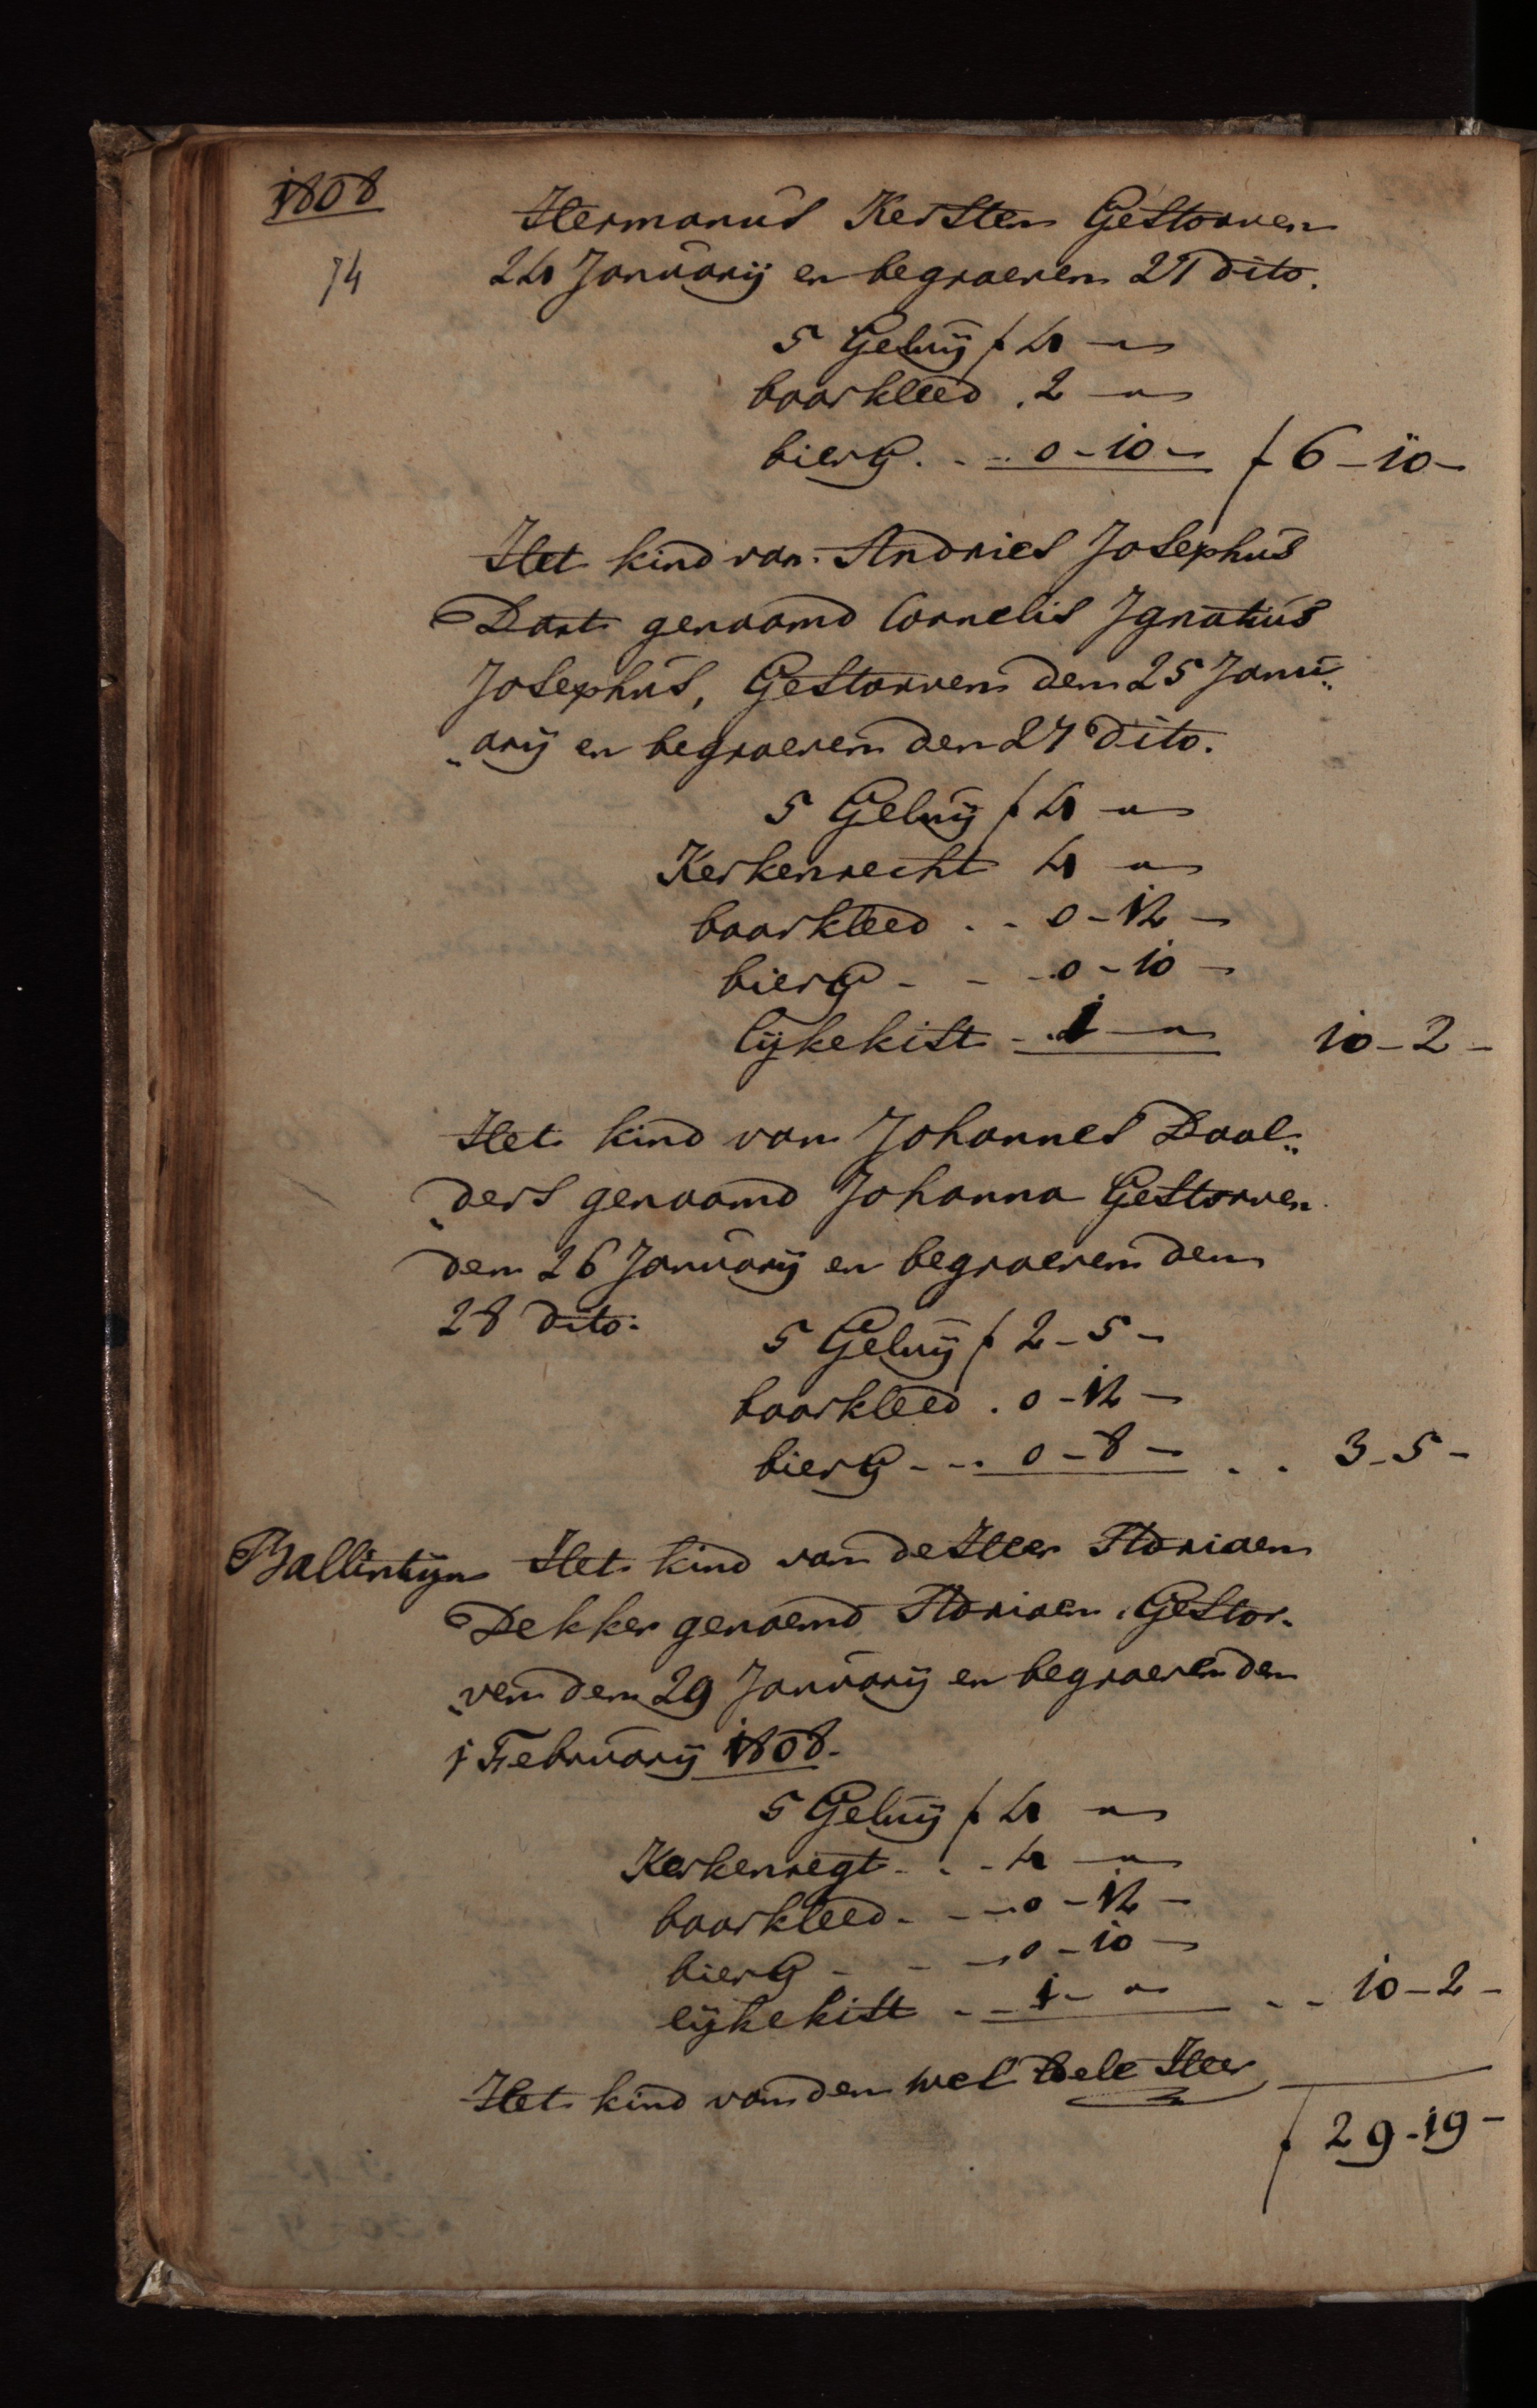 1808
74
Hermanus Kersten Gestorven
24 Januarij en begraeven 27 dito.
5 Geluij f 4 - "
baarkleed . 2 - "
bierG. - .. 0 - 10 - f 6 - 10 -
Het kind van Andries Josephus
Dart genaamd Cornelis Ignatius
Josephus, Gestorven den 25 Janu„
„arij en begraeven den 27 dito.
5 Geluij f 4 - "
Kerkenrecht 4 - "
baarkleed . - 0 - 12 -
bierG - - - 0 - 10 -
lijkekist - . 1 - " 10 - 2 -
Het kind van Johannes Daal„
„ders genaamd Johanna Gestorven
den 26 Januarij en begraeven den
28 dito.
5 Geluij f 2 - 5 -
baarkleed . 0 - 12 -
bierG - - . 0 - 8 - . . 3 - 5 -
Ballintijn Het kind van de Heer Adriaen
Dekker genaemd Adriaen. Gestor„
„ven den 29 Januarij en begraeven den
1 Februarij 1808.
5 Geluij f 4 - "
Kerkenregt - . - 4 - "
baarkleed - - - 0 - 12 -
bierG - - - 0 - 10 -
lijkekist - - 1 - " . - 10 - 2 -
Het kind van den wel Edele Heer
f 29 - 19 -